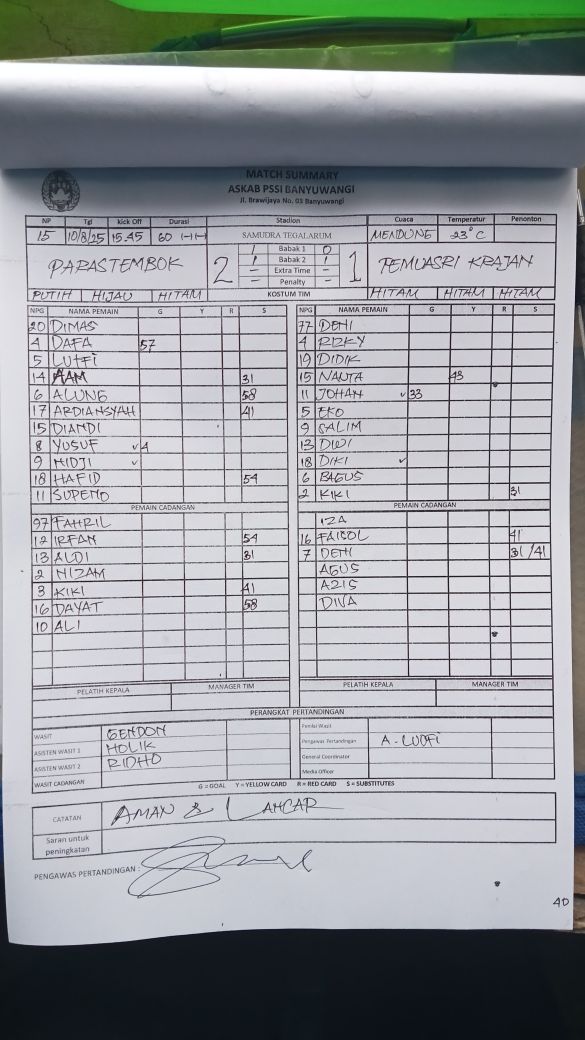 MATCH SUMMARY
ASKAB PSSI BANYUWANGI
Jl. Brawijaya No. 03 Banyuwangi
NP Tgl kick Off Durasi Stadion Cuaca Temperatur Penonton
15 10/8/25 15.45 60 SAMUDRA TEGALARUM MENDUNG 23°C
PARASTEMBOK 2 1 PEMUASRI KRAJAN
1 Babak 1 0
1 Babak 2 1
- Extra Time -
- Penalty -
PUTIH HIJAU HITAM KOSTUM TIM HITAM HITAM HITAM
NPG NAMA PEMAIN G Y R S NPG NAMA PEMAIN G Y R S
20 DIMAS 77 DENI
4 DAFA 57 4 RIZKY
5 LUTFI 19 DIDIK
14 AAM 31 15 NAUTA 43
6 ALUNG 58 11 JOHAN ✓33
17 ARDIANSYAH 41 5 EKO
15 DIANDI 9 SALIM
8 YUSUF ✓4 13 DWI
9 NIDJI ✓ 18 DIKI ✓
18 HAFID 54 6 BAGUS
11 SUPENO 2 KIKI 31
PEMAIN CADANGAN PEMAIN CADANGAN
97 FAHRIL IZA
12 IRFAN 54 16 FAISOL 41
13 ALDI 31 7 DENI 31/41
2 NIZAM AGUS
3 KIKI 41 AZIS
16 DAYAT 58 DIVA
10 ALI
PELATIH KEPALA MANAGER TIM PELATIH KEPALA MANAGER TIM
PERANGKAT PERTANDINGAN
WASIT GENDON Penilai Wasit
ASISTEN WASIT 1 HOLIK Pengawas Pertandingan A. LUDFI
ASISTEN WASIT 2 RIDHO General Coordinator
WASIT CADANGAN Media Officer
G = GOAL Y = YELLOW CARD R = RED CARD S = SUBSTITUTES
CATATAN AMAN & LANCAR
Saran untuk
peningkatan
PENGAWAS PERTANDINGAN :
40